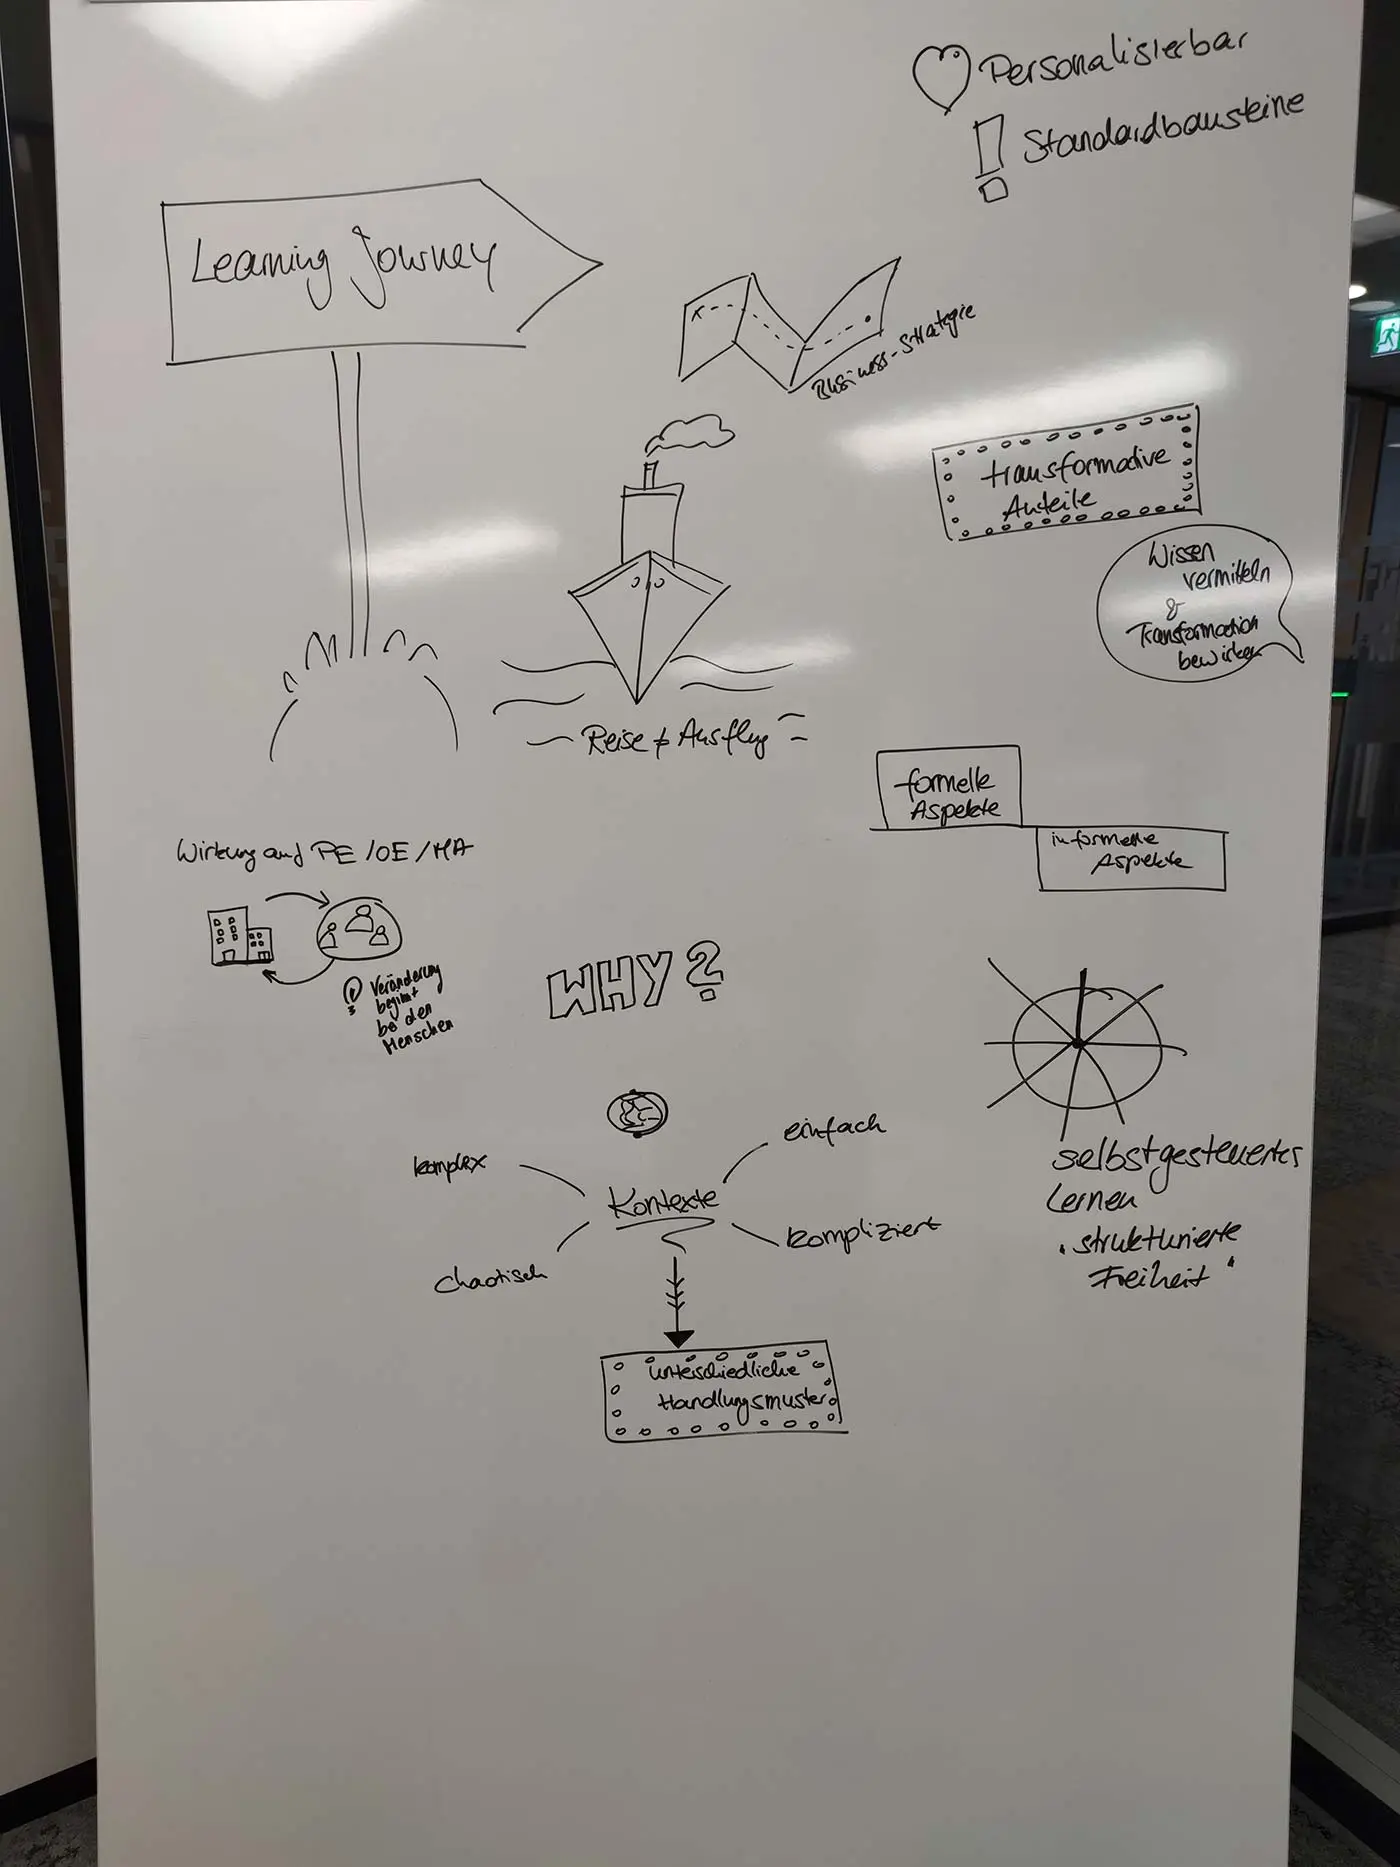 Personalisierbar
Standardbausteine
Learning Journey
Business-Strategie
transformative
Anteile
Wissen
vermitteln
&
Transformation
bewirken
Reise ≠ Ausflug
formelle
Aspekte
informelle
Aspekte
Wirkung auf PE/OE/MA
Veränderung
beginnt
bei den
Menschen
WHY?
komplex
einfach
Kontexte
chaotisch
kompliziert
unterschiedliche
Handlungsmuster
selbstgesteuertes
Lernen
"strukturierte
Freiheit"